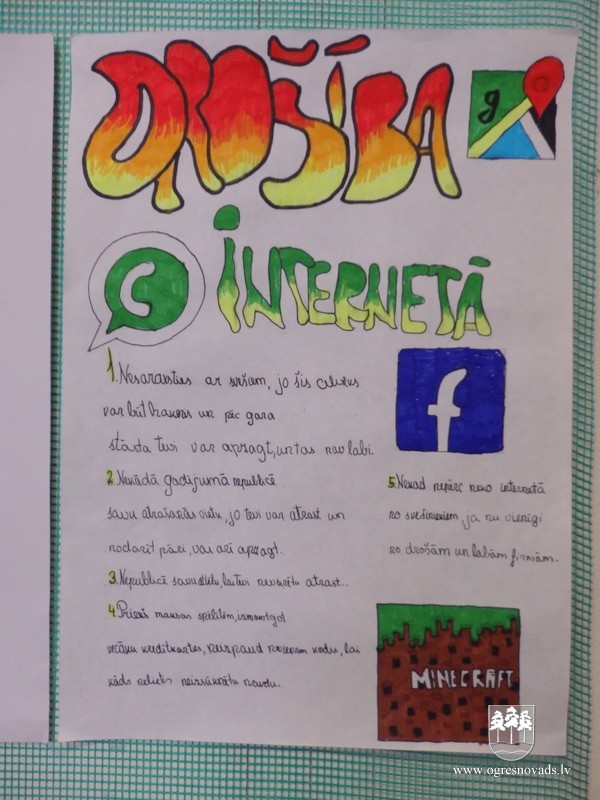 DROŠĪBA
g
INTERNETĀ
1. Nesaraksties ar svešam, jo šis cilvēks
var būt trakais un pēc gara
stāsta tevi var apzagt, un tas nav labi.
2. Nekādā gadījumā nepublicē
savu atrašanās vietu, jo tevi var atrast un
nodarīt pāri, vai arī apzagt.
3. Nepublicē savu, lai tevi nevarētu atrast..
4. maksas spēlēm, izmantojot
vecāku kredītkartes, neizpaud kodu, lai
kāds neizsāknētu naudu.
f
5. Nekad nepērc neko internetā
no svešiniekiem, ja nu vienīgi
no drošām un labām firmām.
MINECRAFT
www.ogresnovads.lv